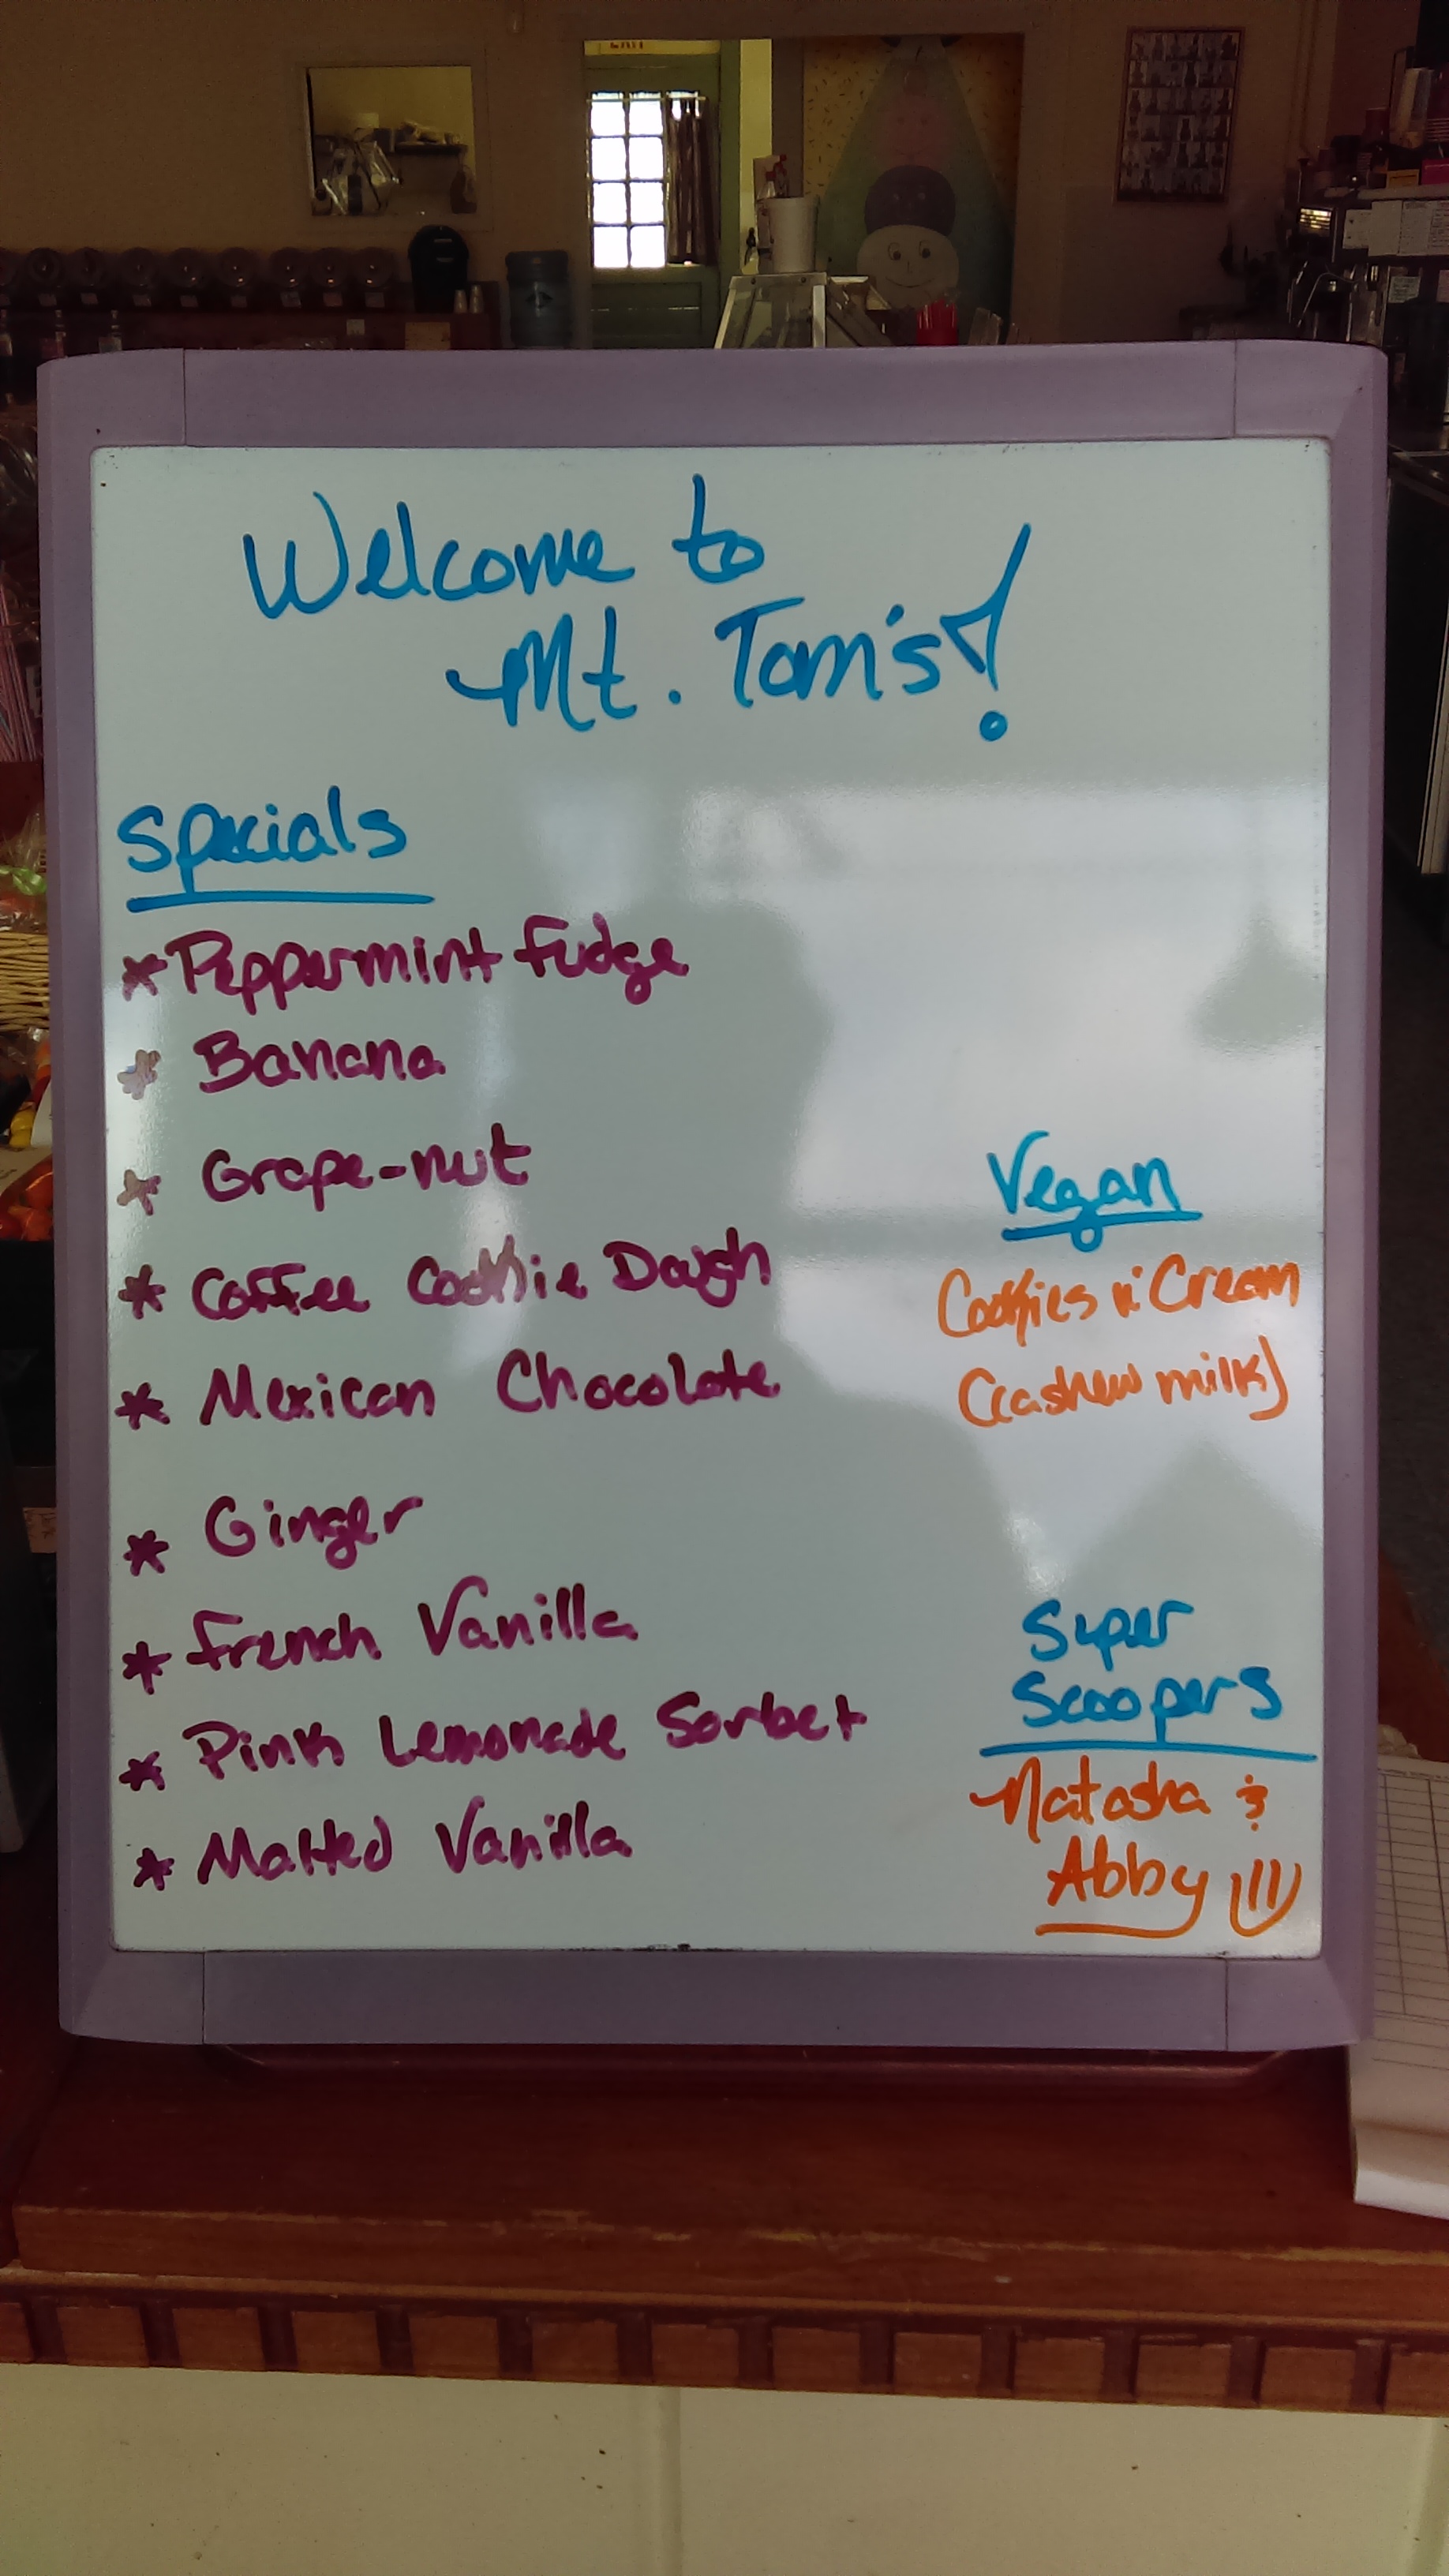 EXIT
Welcome to
Mt. Tom's!
Specials
* Peppermint Fudge
* Banana
* Grape-nut
* Coffee Cookie Dough
* Mexican Chocolate
* Ginger
* French Vanilla
* Pink Lemonade Sorbet
* Malted Vanilla
Vegan
Cookies n' Cream
(cashew milk)
Super
Scoopers
Natasha &
Abby :))